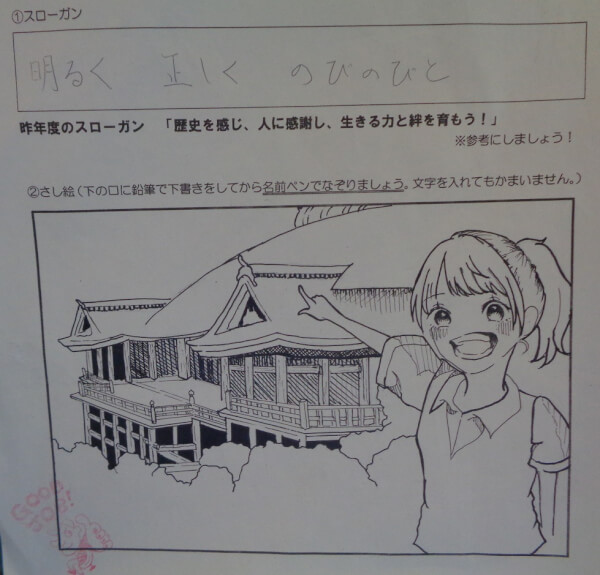 ①スローガン
明るく 正しく のびのびと
昨年度のスローガン 「歴史を感じ、人に感謝し、生きる力と絆を育もう!」
※参考にしましょう!
②さし絵(下の口に鉛筆で下書きをしてから名前ペンでなぞりましょう。文字を入れてもかまいません。)